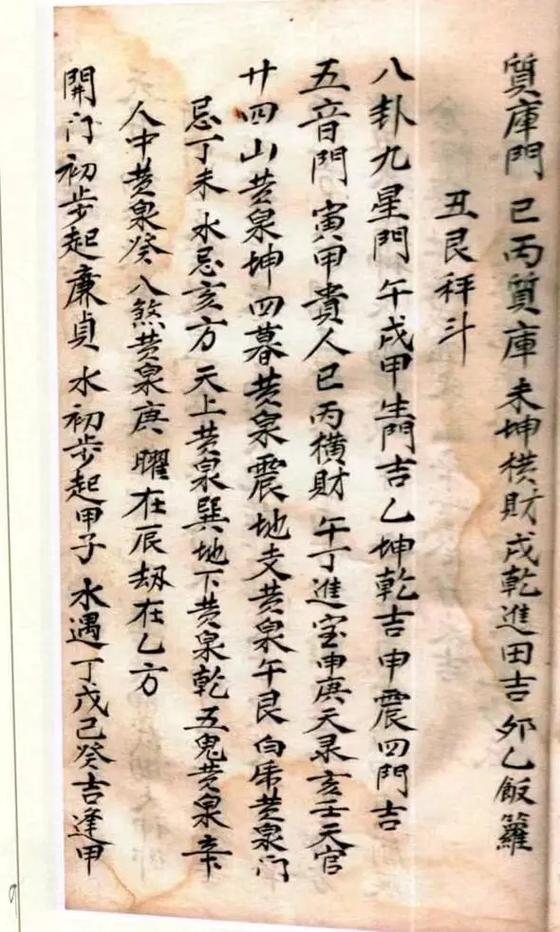 質庫門 巳丙質庫 未坤橫財戌乾進田吉 夘乙飯籮
丑艮秤斗
八卦九星門 午戌甲生門吉乙坤乾吉申震四門吉
五音門 寅甲貴人巳丙橫財 午丁進宝申庚天录亥壬天官
廿四山黄泉坤四暮黄泉震地支黄泉午艮白虎黄泉门
忌丁未水忌亥方 天上黄泉巽地下黄泉乾五鬼黄泉辛
人中黄泉癸八煞黄泉庚 曜在辰刼在乙方
開门初步起廉貞 水初步起甲子 水遇丁戊己癸吉逢甲